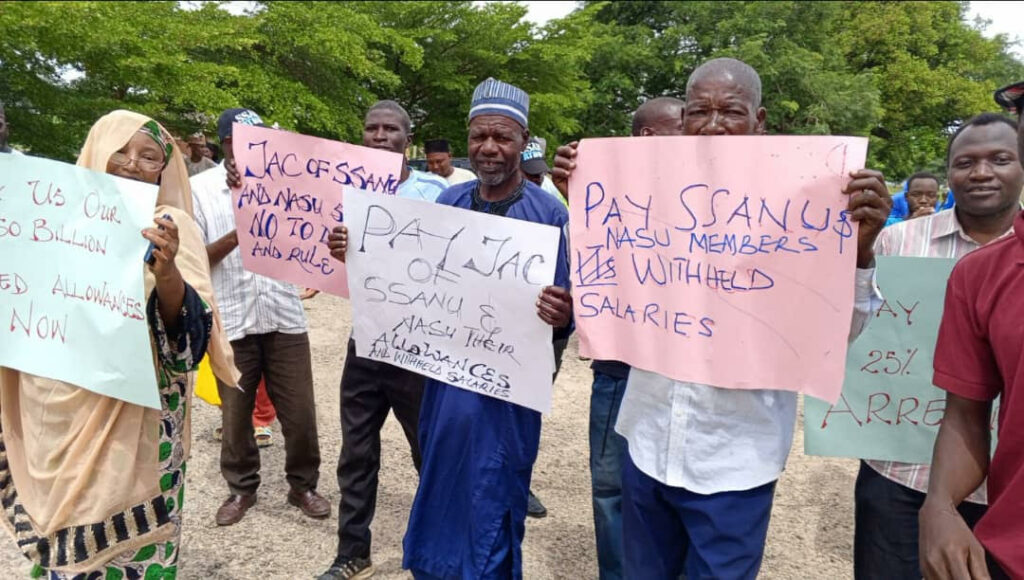 Us Our
50 Billion
ED ALLOWANCES
NOW
JAC OF SSANU
AND NASU
NO TO
AND RULE
PAY JAC
OF
SSANU &
NASU THEIR
ALLOWANCES
AND WITHHELD SALARIES
PAY SSANU $
NASU MEMBERS
WITHHELD
SALARIES
PAY
25%
ARRE